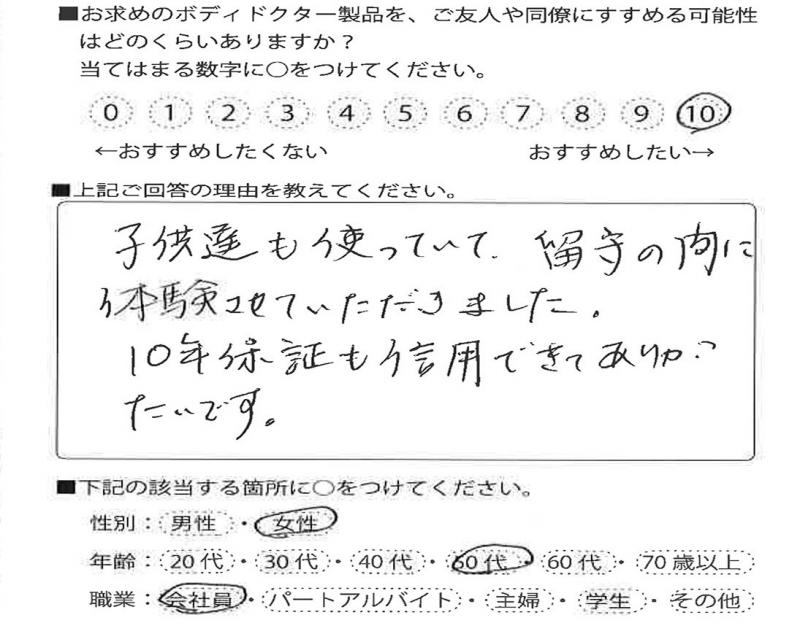 ■お求めのボディドクター製品を、ご友人や同僚にすすめる可能性
はどのくらいありますか？
当てはまる数字に○をつけてください。
0 1 2 3 4 5 6 7 8 9 10
←おすすめしたくない おすすめしたい→
■上記ご回答の理由を教えてください。
子供達も使っていて、留守の間に
体験させていただきました。
10年保証も信用できてありが
たいです。
■下記の該当する箇所に○をつけてください。
性別：男性・女性
年齢：20代・30代・40代・50代・60代・70歳以上
職業：会社員・パートアルバイト・主婦・学生・その他